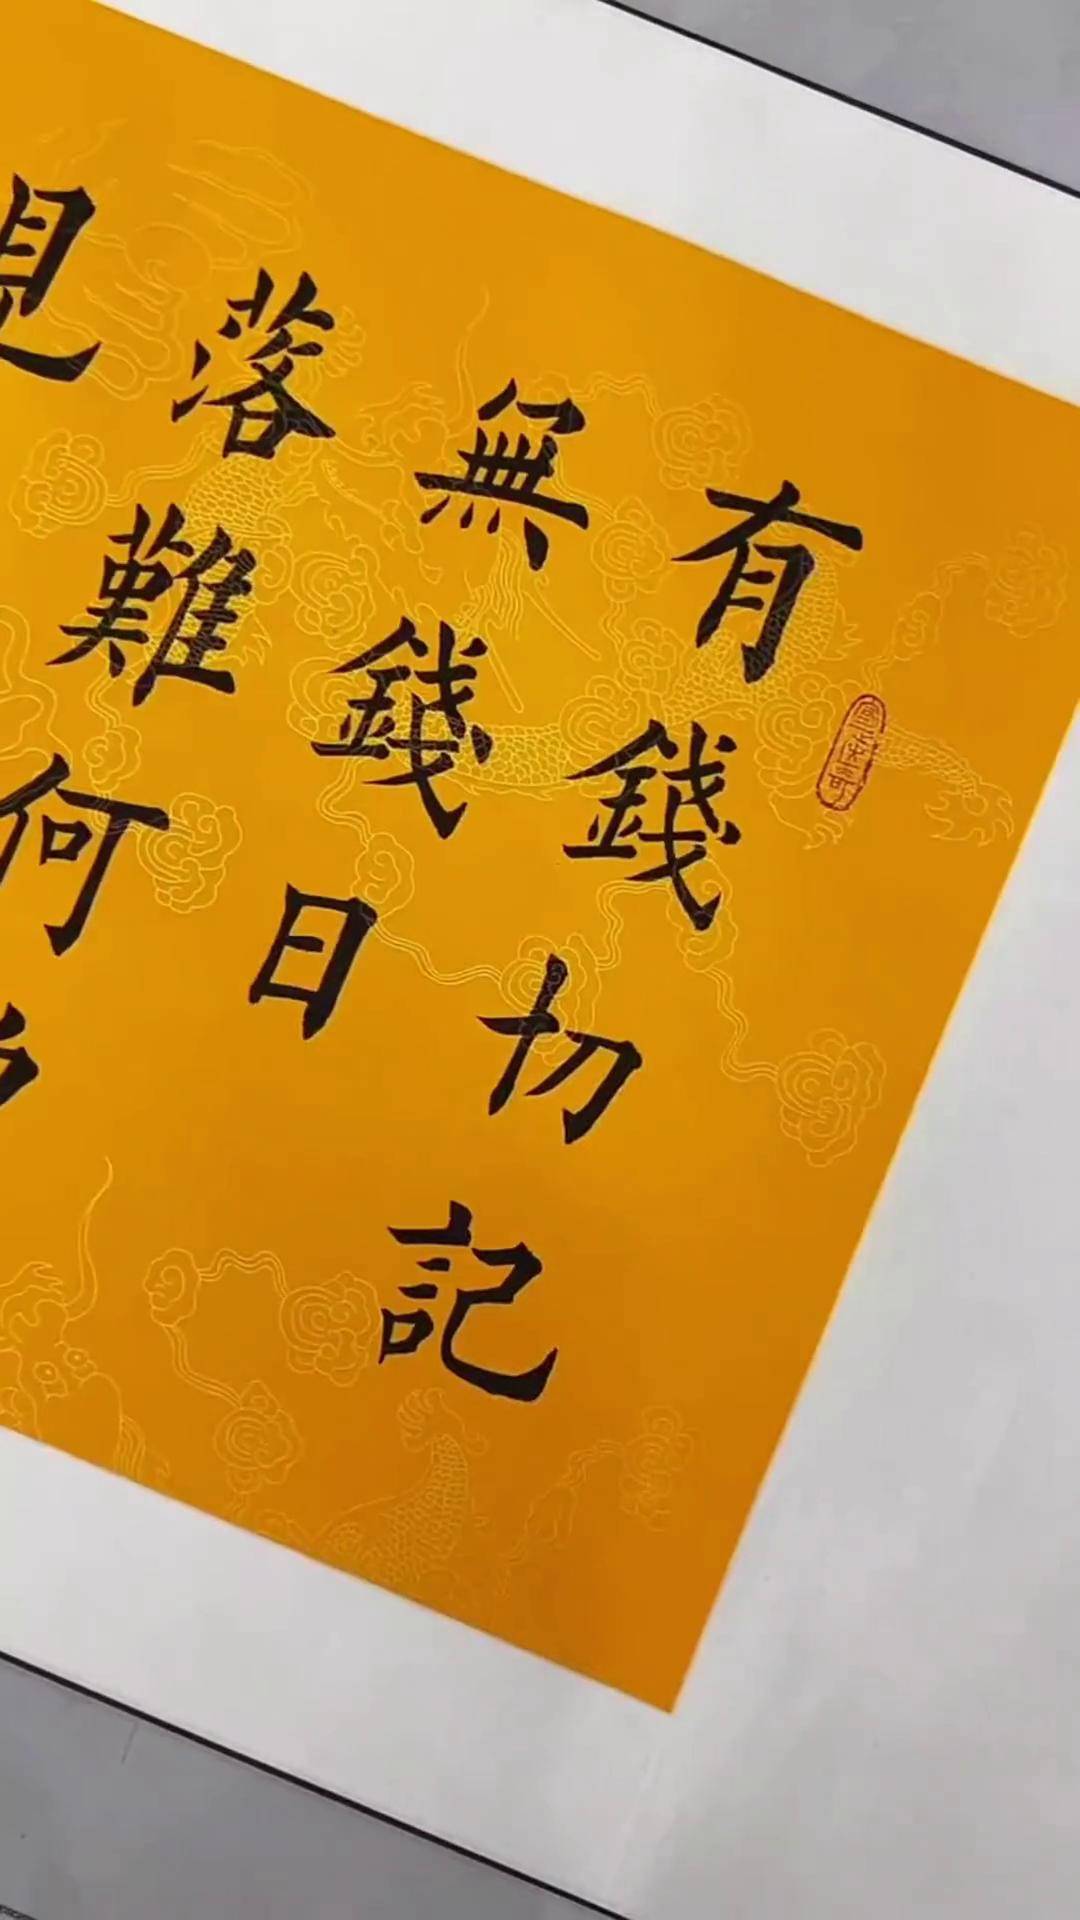 有錢切記
無錢日
落難何